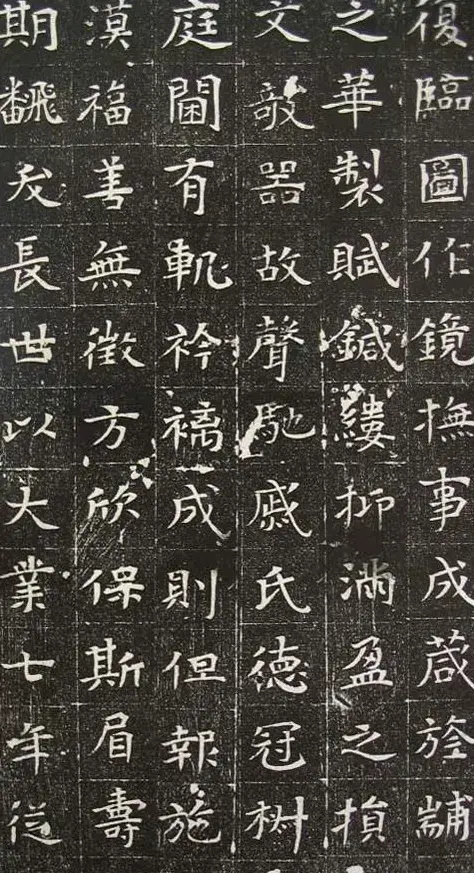 復臨圖作鏡撫事成葴於黼
之華製賦鍼縷抑滿盈之損
文敧器故聲馳戚氏德冠樹
庭閫有軌衿褵成則但報施
漠福善無徵方欣保斯眉壽
期飜長世以大業七年從